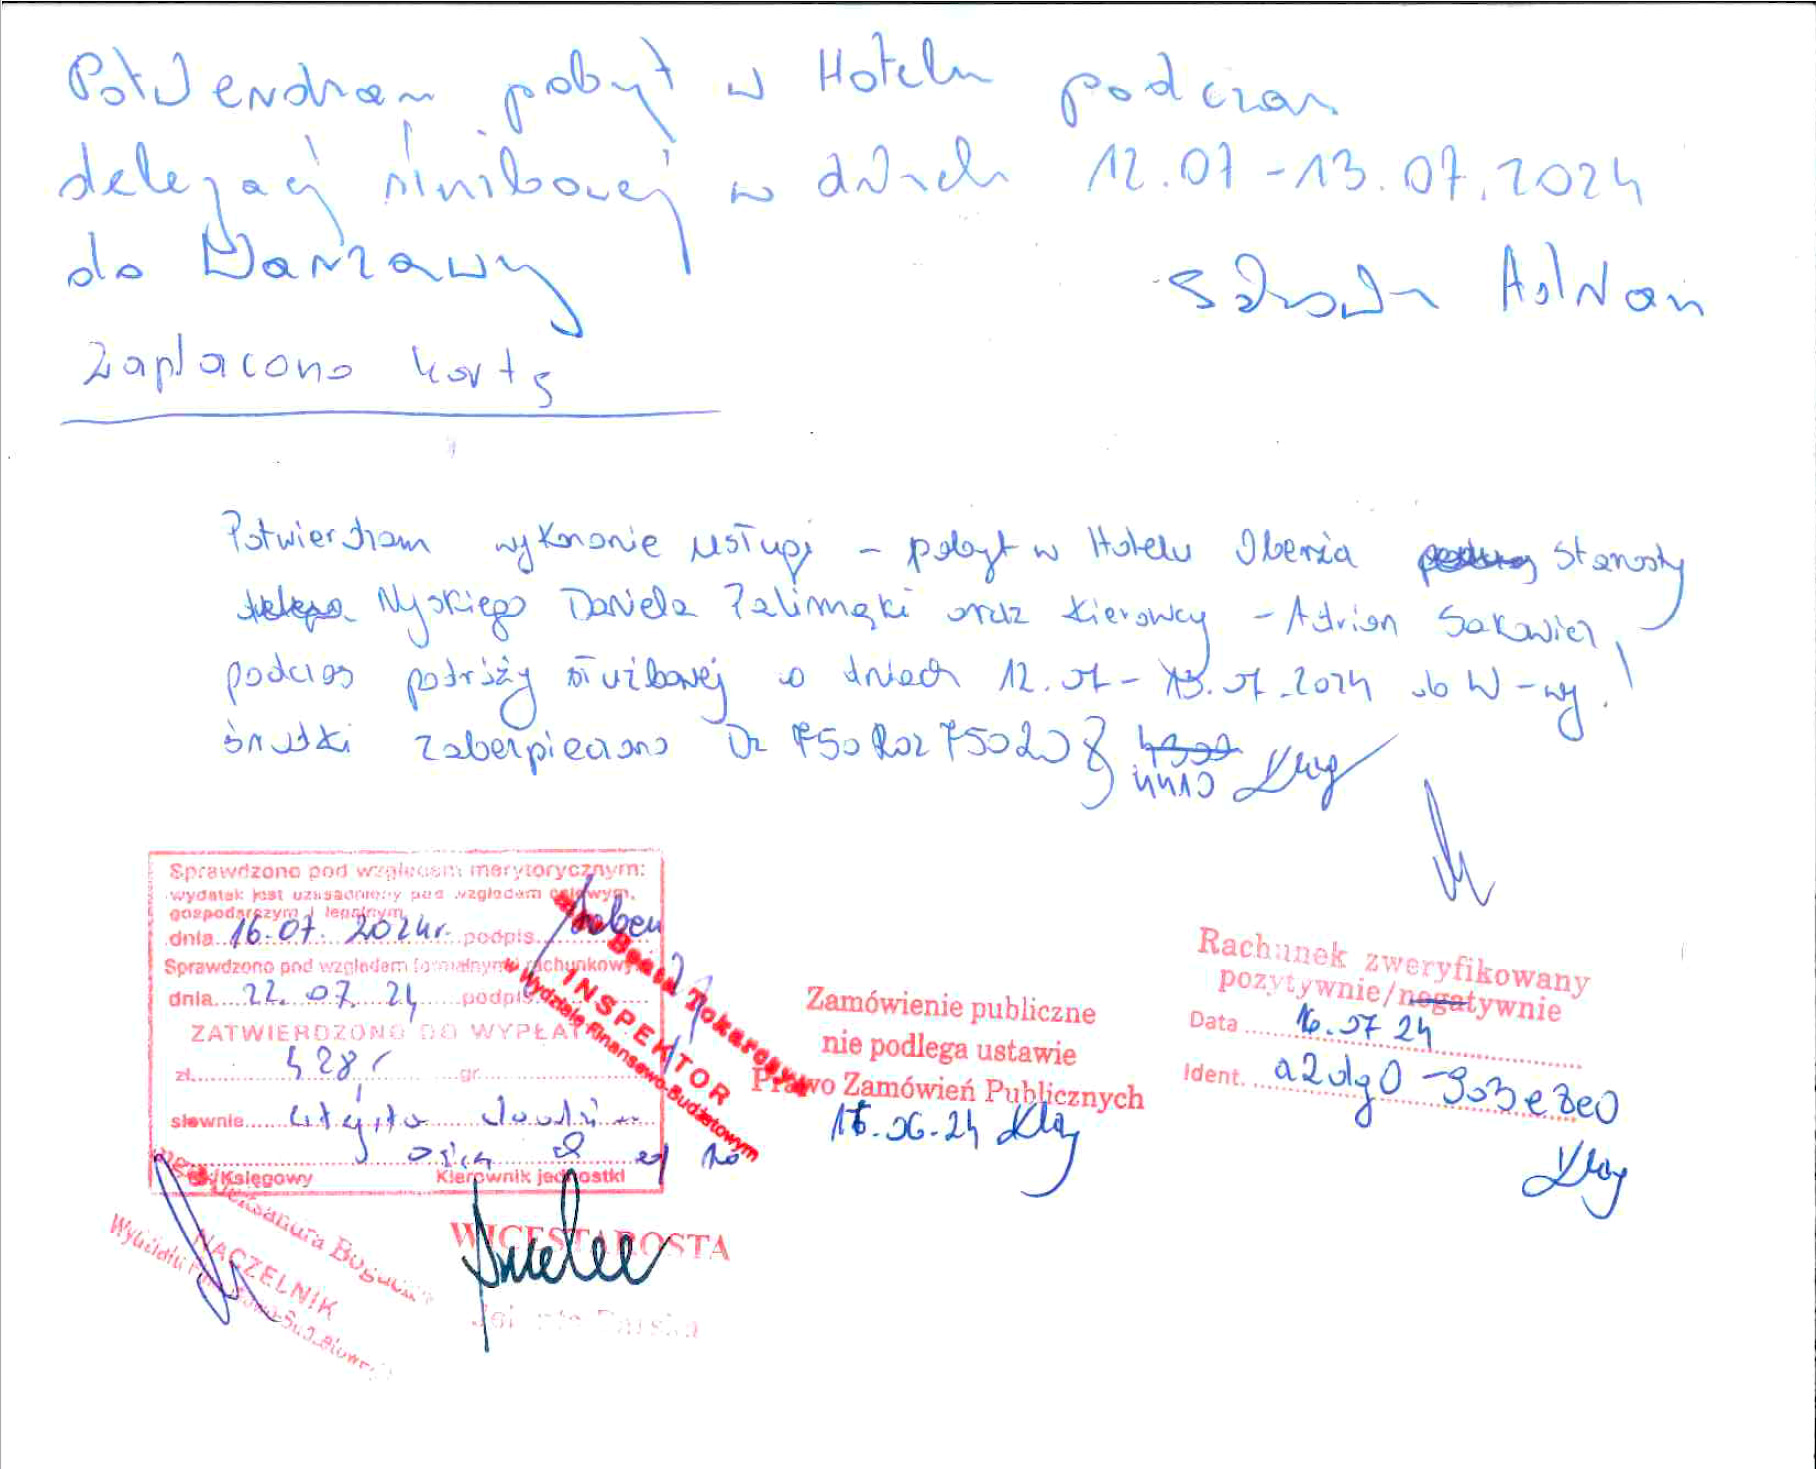 Potwierdzam pobyt w Hotelu podczas
delegacji służbowej w dniach 12.07-13.07.2024
do Warszawy
Adrian
Zapłacono kartą
Potwierdzam wykonanie usługi - pobyt w Hotelu Oberża Starosty
Nyskiego Daniela Palimąki oraz kierowcy - Adrian Sakowicz,
podczas podróży służbowej w dniach 12.07-13.07.2024 do W-wy.
środki zabezpieczono Dz 750 Roz 75020 § 4410
Sprawdzono pod względem merytorycznym:
wydatek jest uzasadniony pod względem celowym,
gospodarczym i legalnym
dnia 16.07.2024r. podpis
Sprawdzono pod względem formalnym i rachunkowym
dnia 22.07.24 podpis
ZATWIERDZONO DO WYPŁATY
zł. 428,- gr.
słownie
Księgowy Kierownik jednostki
Beata Tokarczyk
INSPEKTOR
w Wydziale Finansowo-Budżetowym
Zamówienie publiczne
nie podlega ustawie
Prawo Zamówień Publicznych
16.06.24
Rachunek zweryfikowany
pozytywnie/negatywnie
Data 16.07 24
Ident.
NACZELNIK
WICESTAROSTA